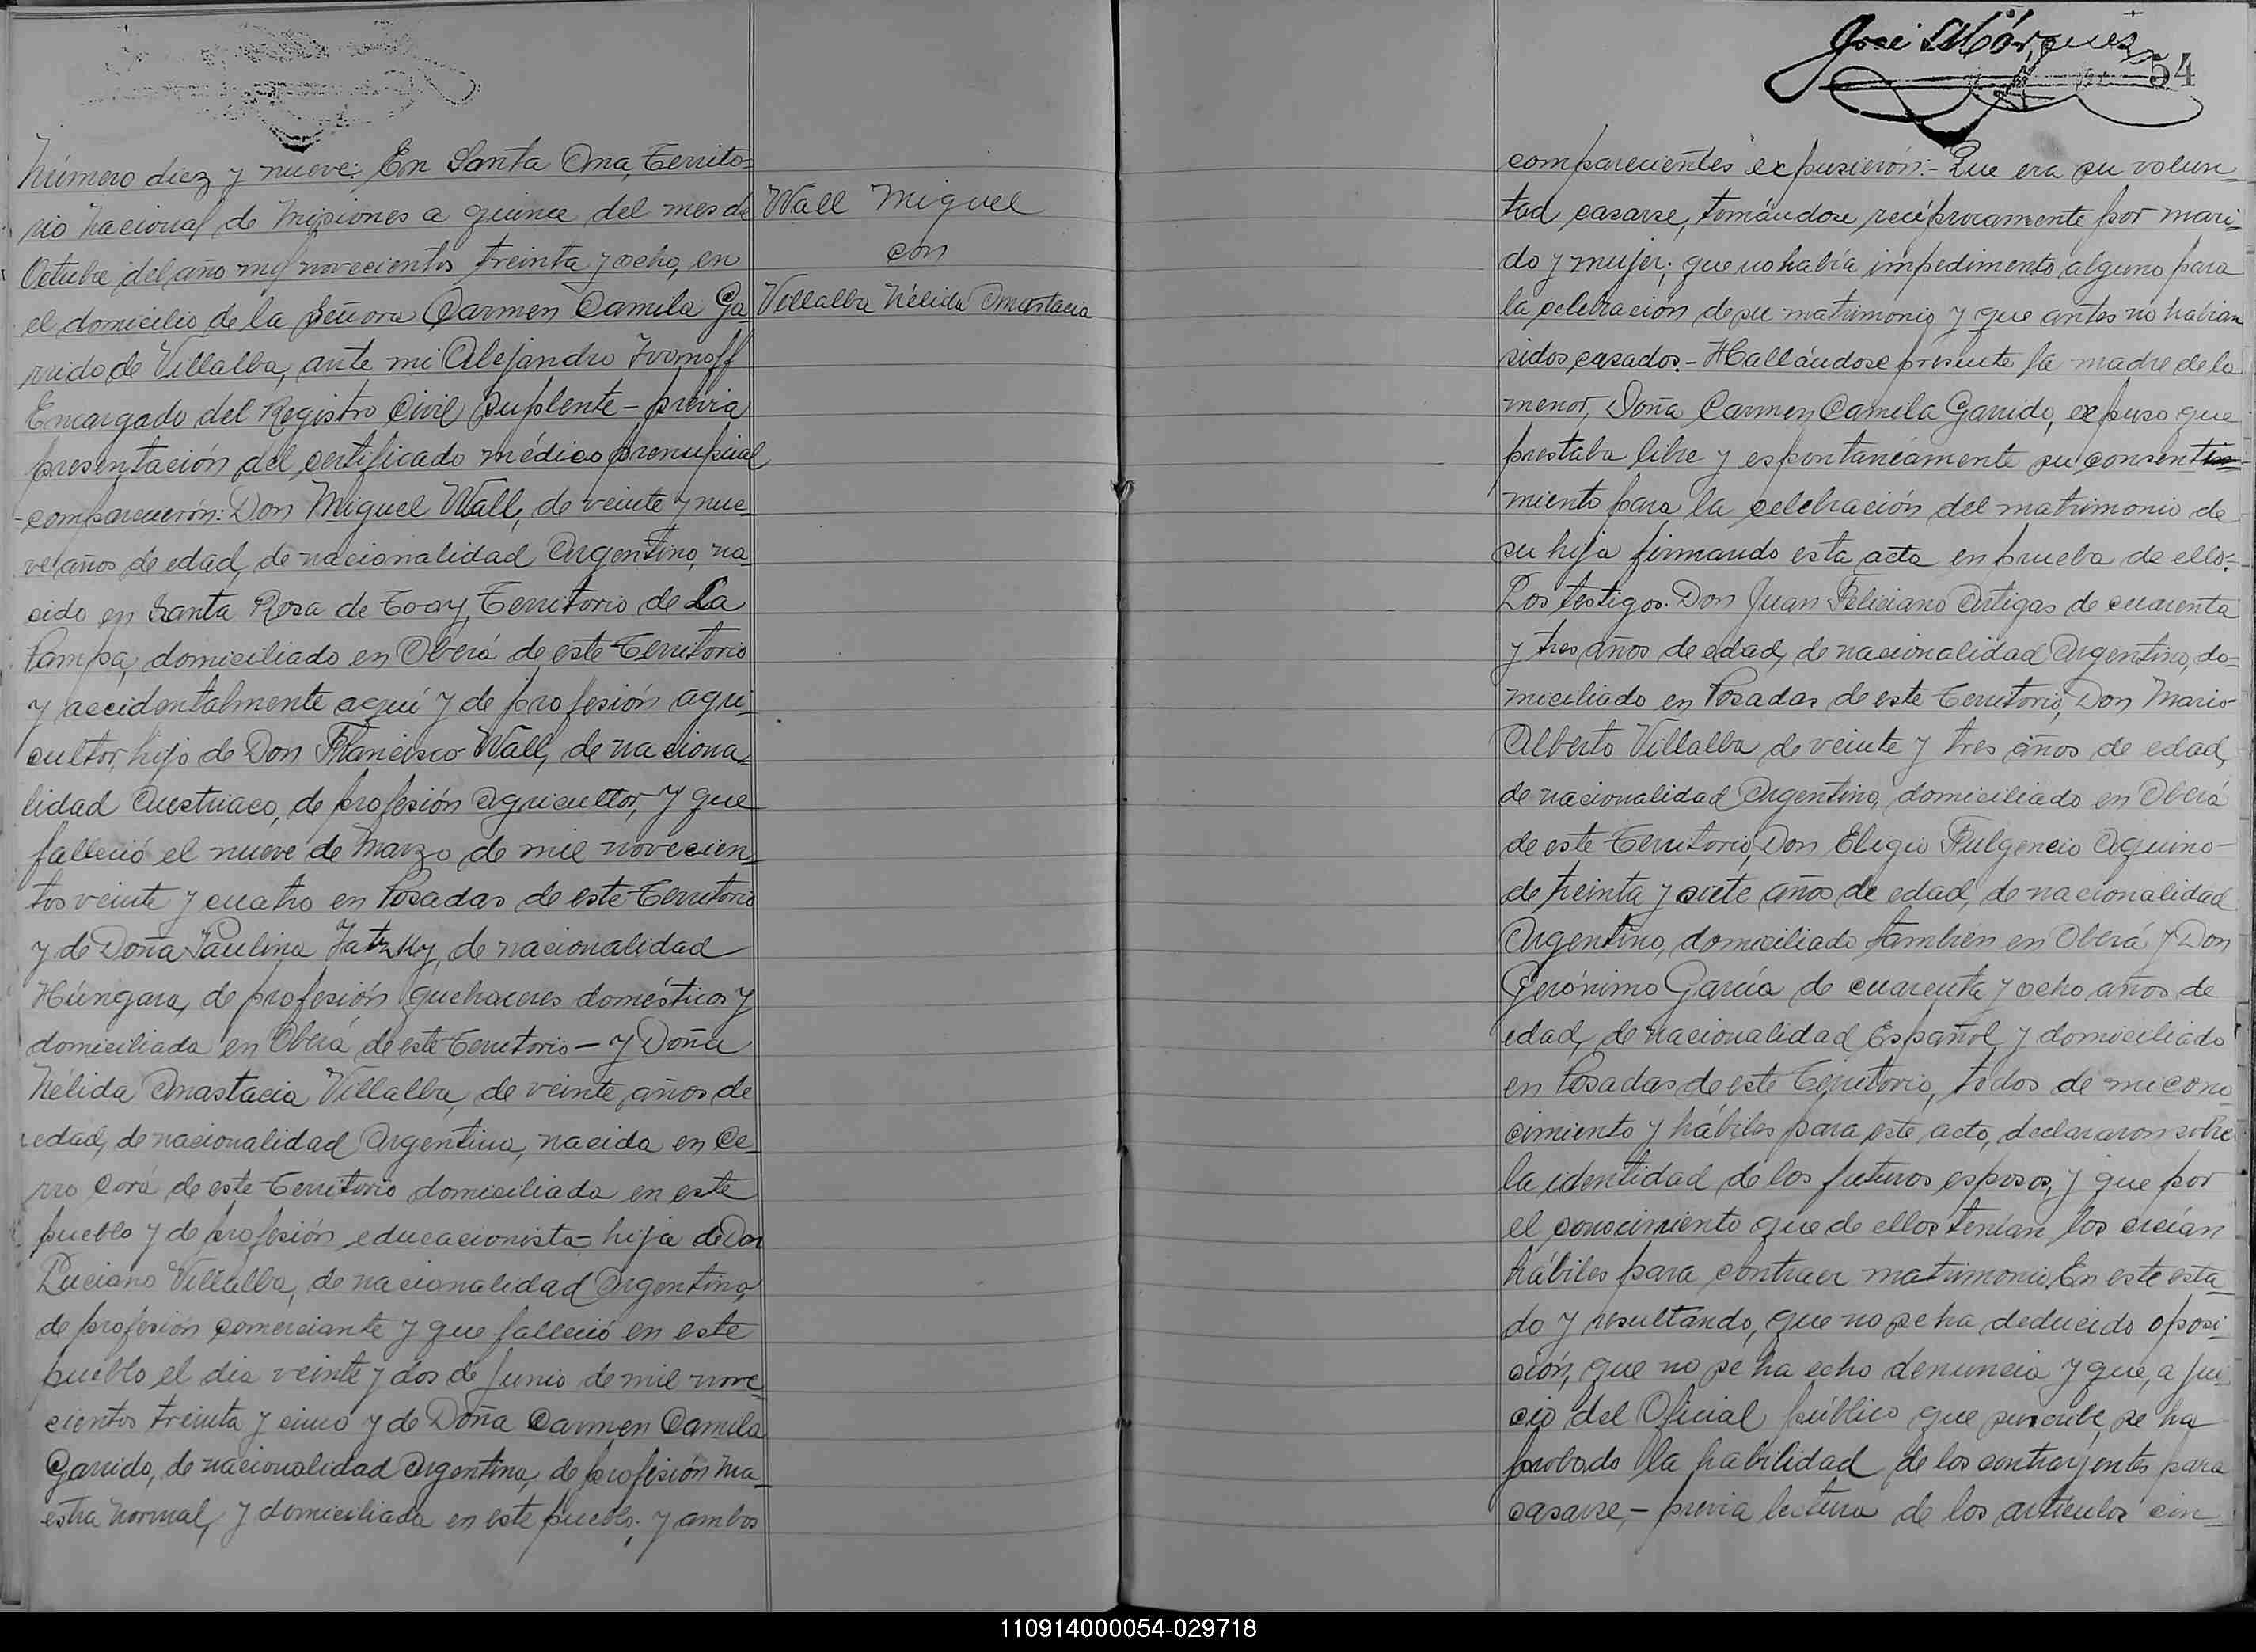 Número diez y nueve: En Santa Ana, Territo=
rio Nacional de Misiones a quince del mes de
Octubre del año mil novecientos treinta y ocho, en
el domicilio de la Señora Carmen Camila Ga
rrido de Villalba, ante mi Alejandro Ivonoff
Encargado del Registro Civil Suplente - previa
presentación del certificado médico prenupcial
-comparecieron: Don Miguel Wall, de veinte y nue
ve años de edad, de nacionalidad Argentino, na-
cido en Santa Rosa de Toay, Territorio de La
Pampa, domiciliado en Oberá de este Territorio
y accidentalmente aquí y de profesión agri-
cultor, hijo de Don Francisco Wall, de naciona-
lidad Austriaco, de profesión agricultor, y que
falleció el nueve de Marzo de mil novecien-
tos veinte y cuatro en Posadas de este Territorio
y de Doña Paulina Jatzky, de nacionalidad
Húngara, de profesión quehaceres domésticos y
domiciliada en Oberá de este Territorio - y Doña
Nélida Anastacia Villalba, de veinte años de
edad, de nacionalidad Argentina, nacida en Ce-
rro Corá de este Territorio domiciliada en este
pueblo y de profesión educacionista= hija de Don
Luciano Villalba, de nacionalidad Argentino,
de profesión comerciante y que falleció en este
pueblo el dia veinte y dos de Junio de mil nove-
cientos treinta y cinco y de Doña Carmen Camila
Garrido, de nacionalidad Argentina, de profesión Ma-
estra Normal, y domiciliada en este pueblo; y ambos
Wall Miguel
con
Villalba Nélida Anastacia
José Márquez
54
comparecientes expusierón:- Que era su volun-
tad casarse, tomándose recíprocamente por mari-
do y mujer; que no había impedimento alguno para
la celebración de su matrimonio y que antes no habían
sidos casados.- Hallándose presente la madre de la
menor, Doña Carmen Camila Garrido, expuso que
prestaba libre y espontanéamente su consenti-
miento para la celebración del matrimonio de
su hija firmando esta acta en prueba de ello.-
Los testigos. Don Juan Feliciano Artigas de cuarenta
y tres años de edad, de nacionalidad Argentino, do-
miciliado en Posadas de este Territorio, Don Mario
Alberto Villalba de veinte y tres años de edad,
de nacionalidad Argentino, domiciliado en Oberá
de este Territorio, Don Eligio Fulgencio Aquino-
de treinta y siete años de edad, de nacionalidad
Argentino, domiciliado también en Oberá y Don
Gerónimo García de cuarenta y ocho años de
edad, de nacionalidad Español y domiciliado
en Posadas de este Territorio, todos de mi cono
cimiento y hábiles para este acto, declararon sobre
la identidad de los futuros esposos, y que por
el conocimiento que de ellos tenían los creían
hábiles para contraer matrimonio. En este esta-
do y resultando, que no se ha deducido oposi-
ción, que no se ha echo denuncia y que, a jui-
cio del Oficial público que suscribe, se ha
probado la habilidad de los contrayentes para
casarse,- previa lectura de los artículos cin-
110914000054-029718